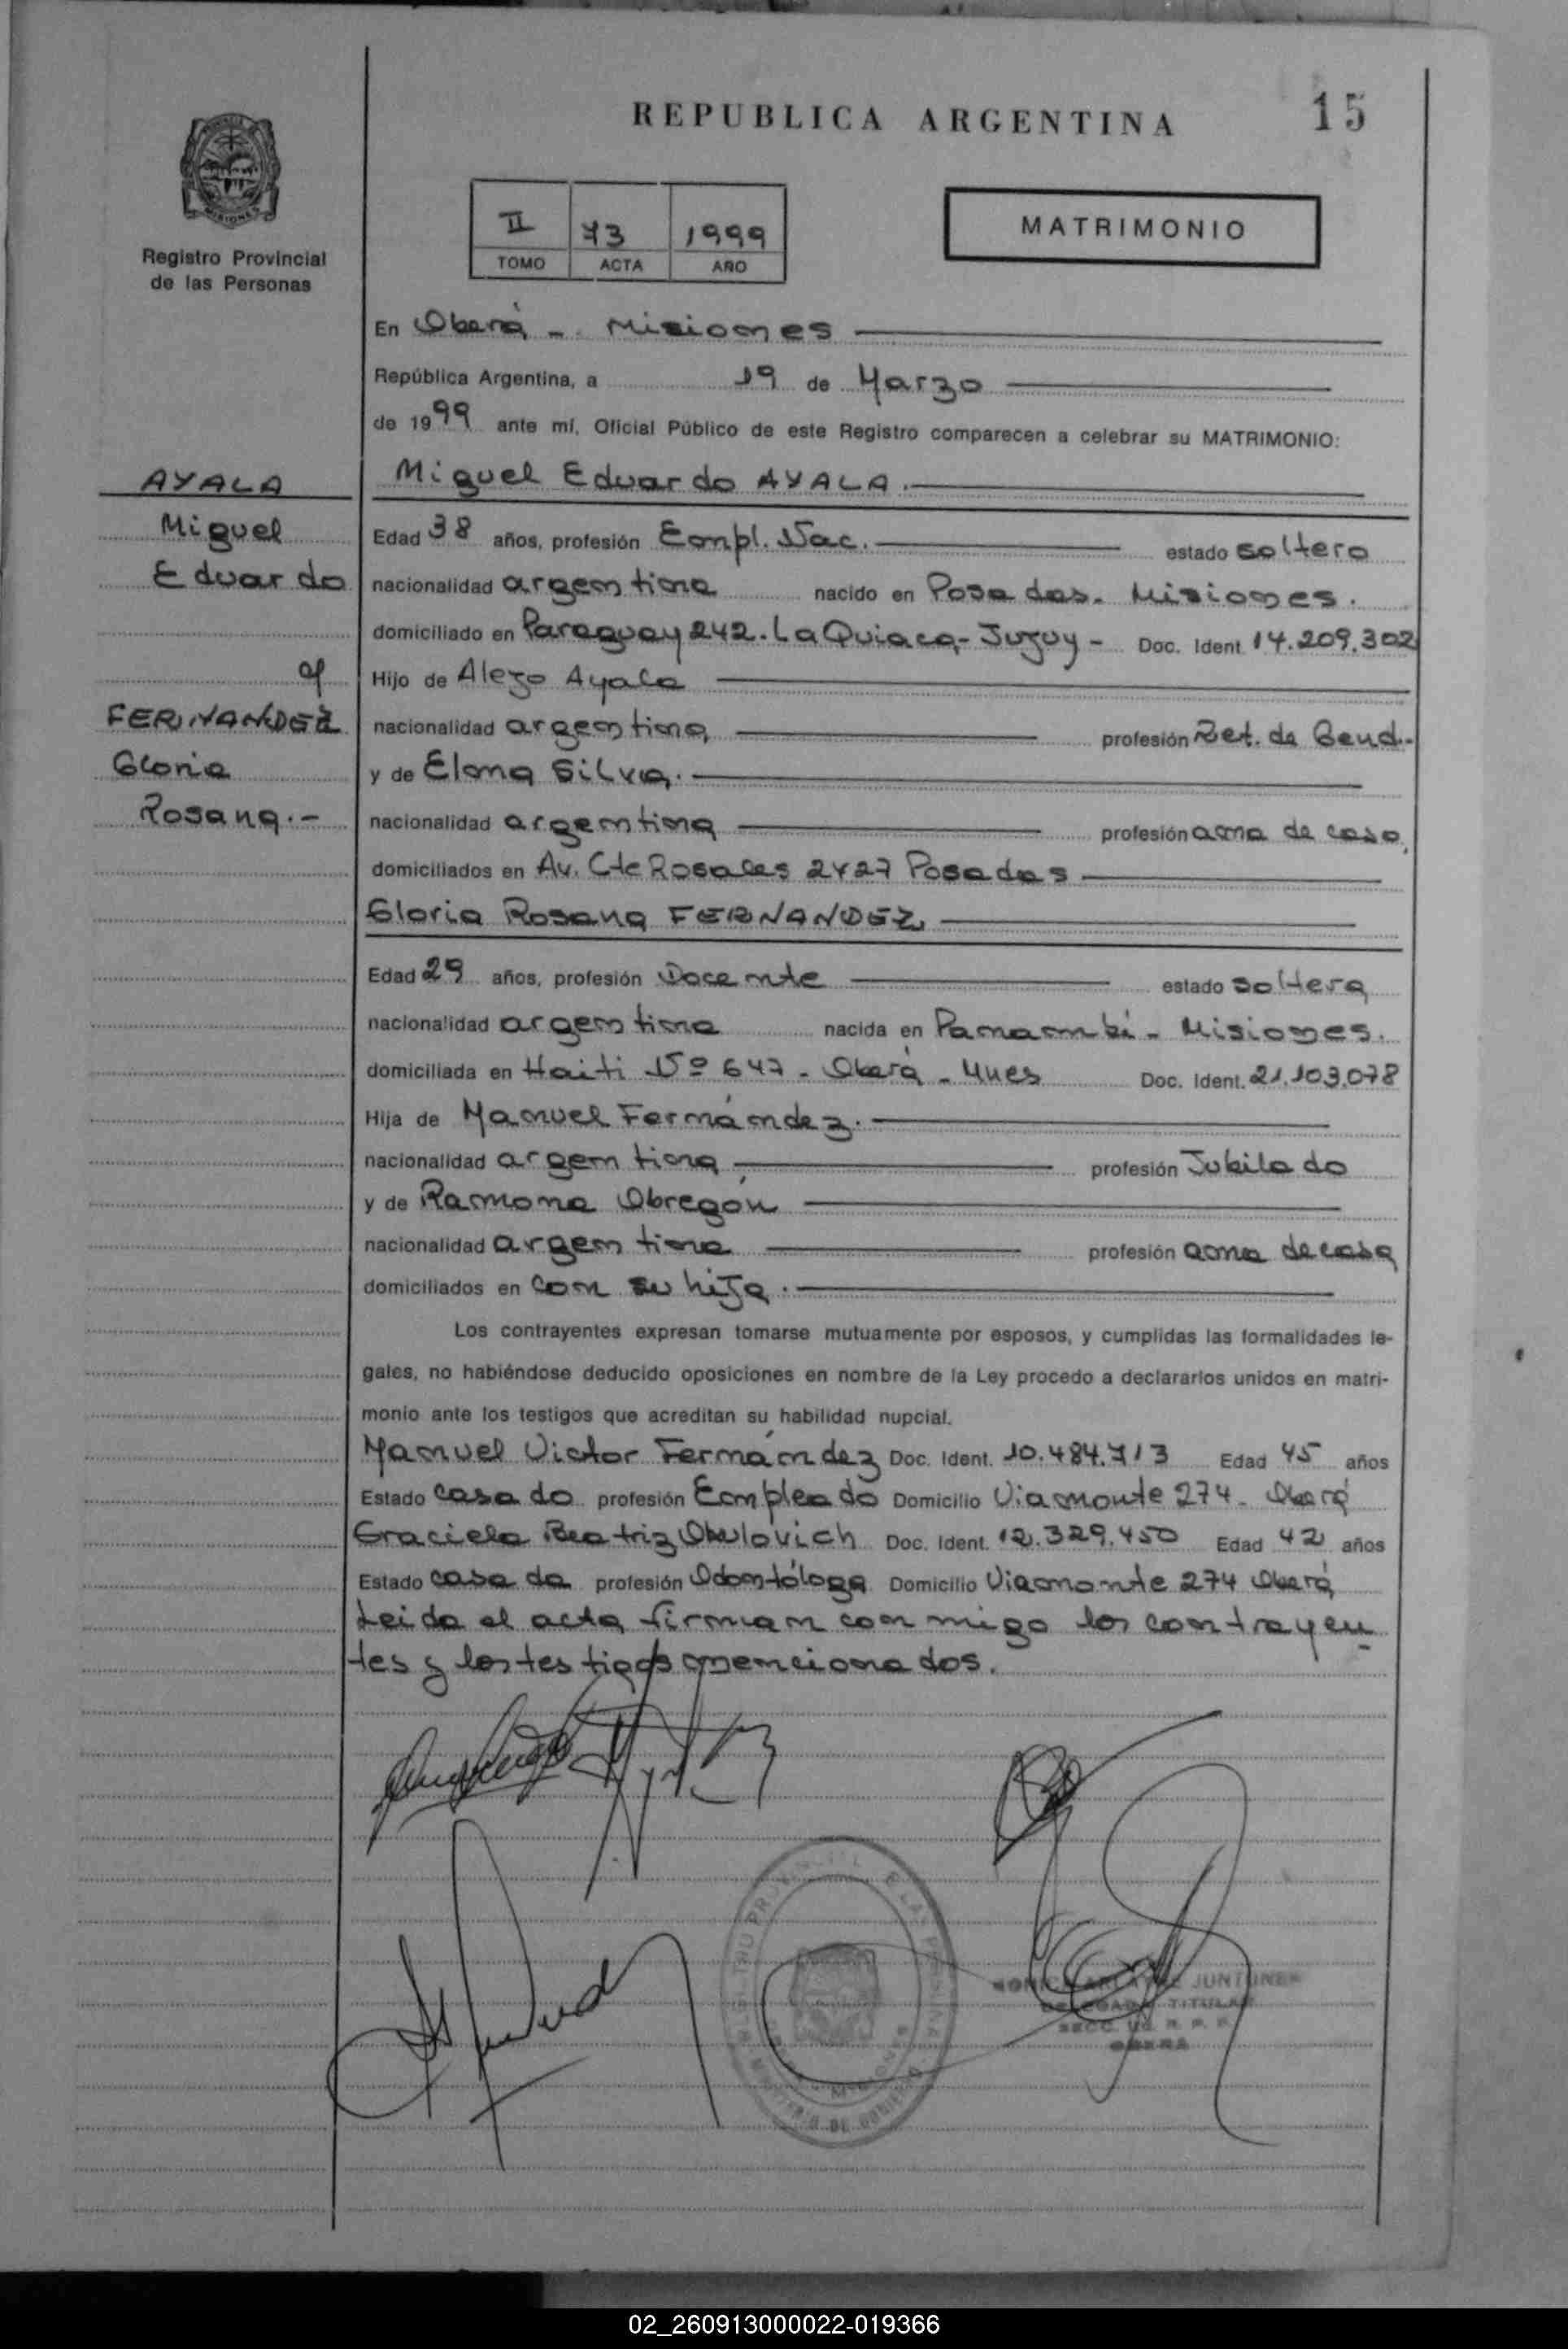 REPUBLICA ARGENTINA
15
Registro Provincial
de las Personas
II 73 1999
TOMO ACTA AÑO
MATRIMONIO
En Oberá - Misiones
República Argentina, a 19 de Marzo
de 1999 ante mí, Oficial Público de este Registro comparecen a celebrar su MATRIMONIO:
AYALA
Miguel
Eduardo
FERNANDEZ
Gloria
Rosana.-
Miguel Eduardo AYALA.
Edad 38 años, profesión Empl. Nac. estado soltero
nacionalidad argentina nacido en Posadas. Misiones.
domiciliado en Paraguay 242. La Quiaca - Jujuy - Doc. Ident. 14.209.302
Hijo de Alejo Ayala
nacionalidad argentina profesión Ret. de Gend.
y de Elena Silva.
nacionalidad argentina profesión ama de casa
domiciliados en Av. Cte Rosales 2427 Posadas
Gloria Rosana FERNANDEZ
Edad 29 años, profesión Docente estado soltera
nacionalidad argentina nacida en Panambí - Misiones.
domiciliada en Haiti Nº 647 - Oberá - Mnes Doc. Ident. 21.103.078
Hija de Manuel Fernández.
nacionalidad argentina profesión Jubilado
y de Ramona Obregón
nacionalidad argentina profesión ama de casa
domiciliados en con su hija.
Los contrayentes expresan tomarse mutuamente por esposos, y cumplidas las formalidades le-
gales, no habiéndose deducido oposiciones en nombre de la Ley procedo a declararlos unidos en matri-
monio ante los testigos que acreditan su habilidad nupcial.
Manuel Victor Fernández Doc. Ident. 10.484.713 Edad 45 años
Estado casado profesión Empleado Domicilio Viamonte 274 - Oberá
Graciela Beatriz Doc. Ident. 12.329.450 Edad 42 años
Estado casada profesión Odontóloga Domicilio Viamonte 274 Oberá
Leida el acta firman conmigo los contrayen
tes y los testigos mencionados.
JUNTUNEN
DELEGADA TITULAR
SECC. R. P. P.
OBERA
02_260913000022-019366